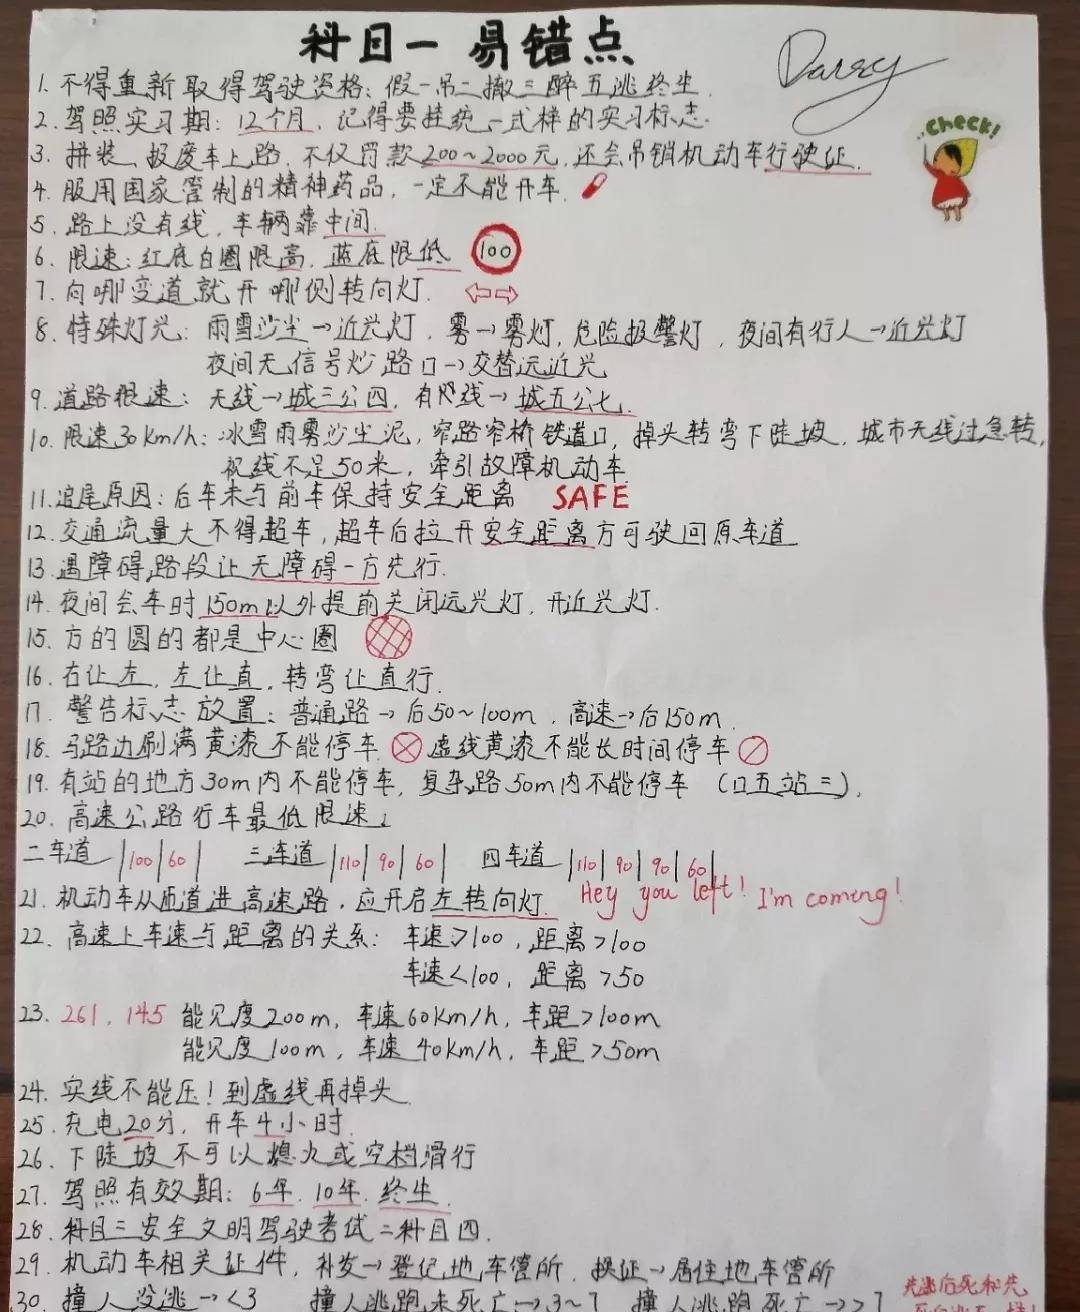 科目一 易错点
Darry
Check!
1. 不得重新取得驾驶资格：假一吊二撤三醉五逃终生.
2. 驾照实习期：12个月，记得要挂统一式样的实习标志.
3. 拼装、报废车上路，不仅罚款200~2000元，还会吊销机动车行驶证.
4. 服用国家管制的精神药品，一定不能开车.
5. 路上没有线，车辆靠中间.
6. 限速：红底白圈限高，蓝底限低 100
7. 向哪变道就开哪侧转向灯.
8. 特殊灯光：雨雪沙尘→近光灯，雾→雾灯，危险报警灯，夜间有行人→近光灯
夜间无信号灯路口→交替远近光
9. 道路限速：无线→城三公四，有线→城五公七.
10. 限速30km/h：冰雪雨雾沙尘泥，窄路窄桥铁道口，掉头转弯下陡坡，城市无线过急转，
视线不足50米，牵引故障机动车
11. 追尾原因：后车未与前车保持安全距离 SAFE
12. 交通流量大不得超车，超车后拉开安全距离方可驶回原车道
13. 遇障碍路段让无障碍一方先行.
14. 夜间会车时150m以外提前关闭远光灯，开近光灯.
15. 方的圆的都是中心圈
16. 右让左，左让直，转弯让直行.
17. 警告标志放置：普通路→后50~100m，高速→后150m.
18. 马路边刷满黄漆不能停车 虚线黄漆不能长时间停车
19. 有站的地方30m内不能停车，复杂路50m内不能停车（口五站三）.
20. 高速公路行车最低限速：
二车道 |100|60| 三车道 |110|90|60| 四车道 |110|90|90|60|
21. 机动车从匝道进高速路，应开启左转向灯. Hey you left! I'm coming!
22. 高速上车速与距离的关系：车速≥100，距离>100
车速<100，距离>50
23. 261，145 能见度200m，车速60km/h，车距>100m
能见度100m，车速40km/h，车距>50m
24. 实线不能压！到虚线再掉头
25. 充电20分，开车4小时.
26. 下陡坡不可以熄火或空档滑行
27. 驾照有效期：6年、10年、终生.
28. 科目三安全文明驾驶考试=科目四.
29. 机动车相关证件，补发→登记地车管所，换证→居住地车管所
30. 撞人没逃→<3 撞人逃跑未死亡→3~7 撞人逃跑死亡→>7
先逃后死和先